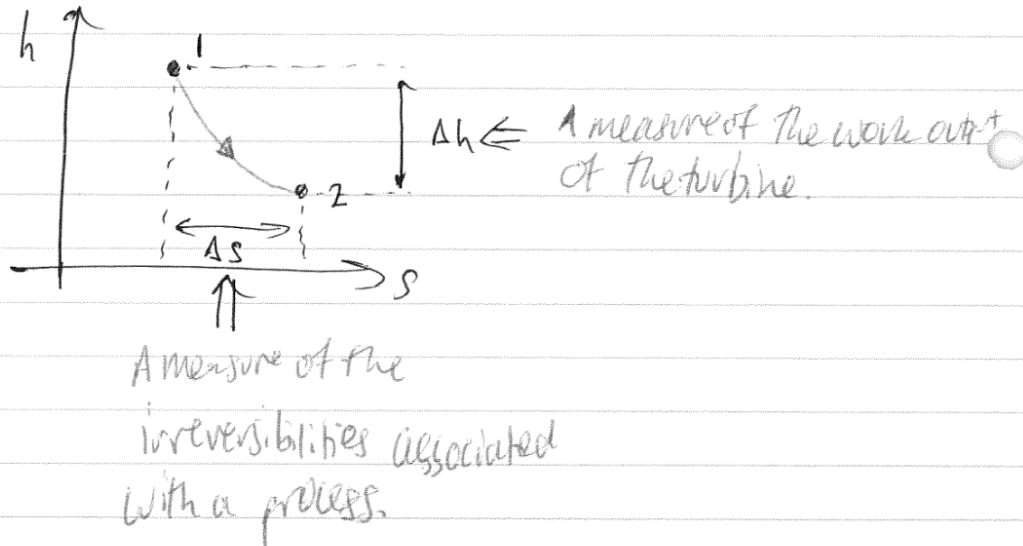 h
1
Δh ⇐ A measure of the work output
of the turbine.
2
Δs
s
A measure of the
irreversibilities associated
with a process.